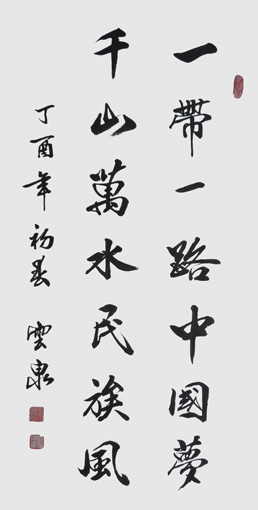 一帶一路中國夢
千山萬水民族風
丁酉年初春 雲泉